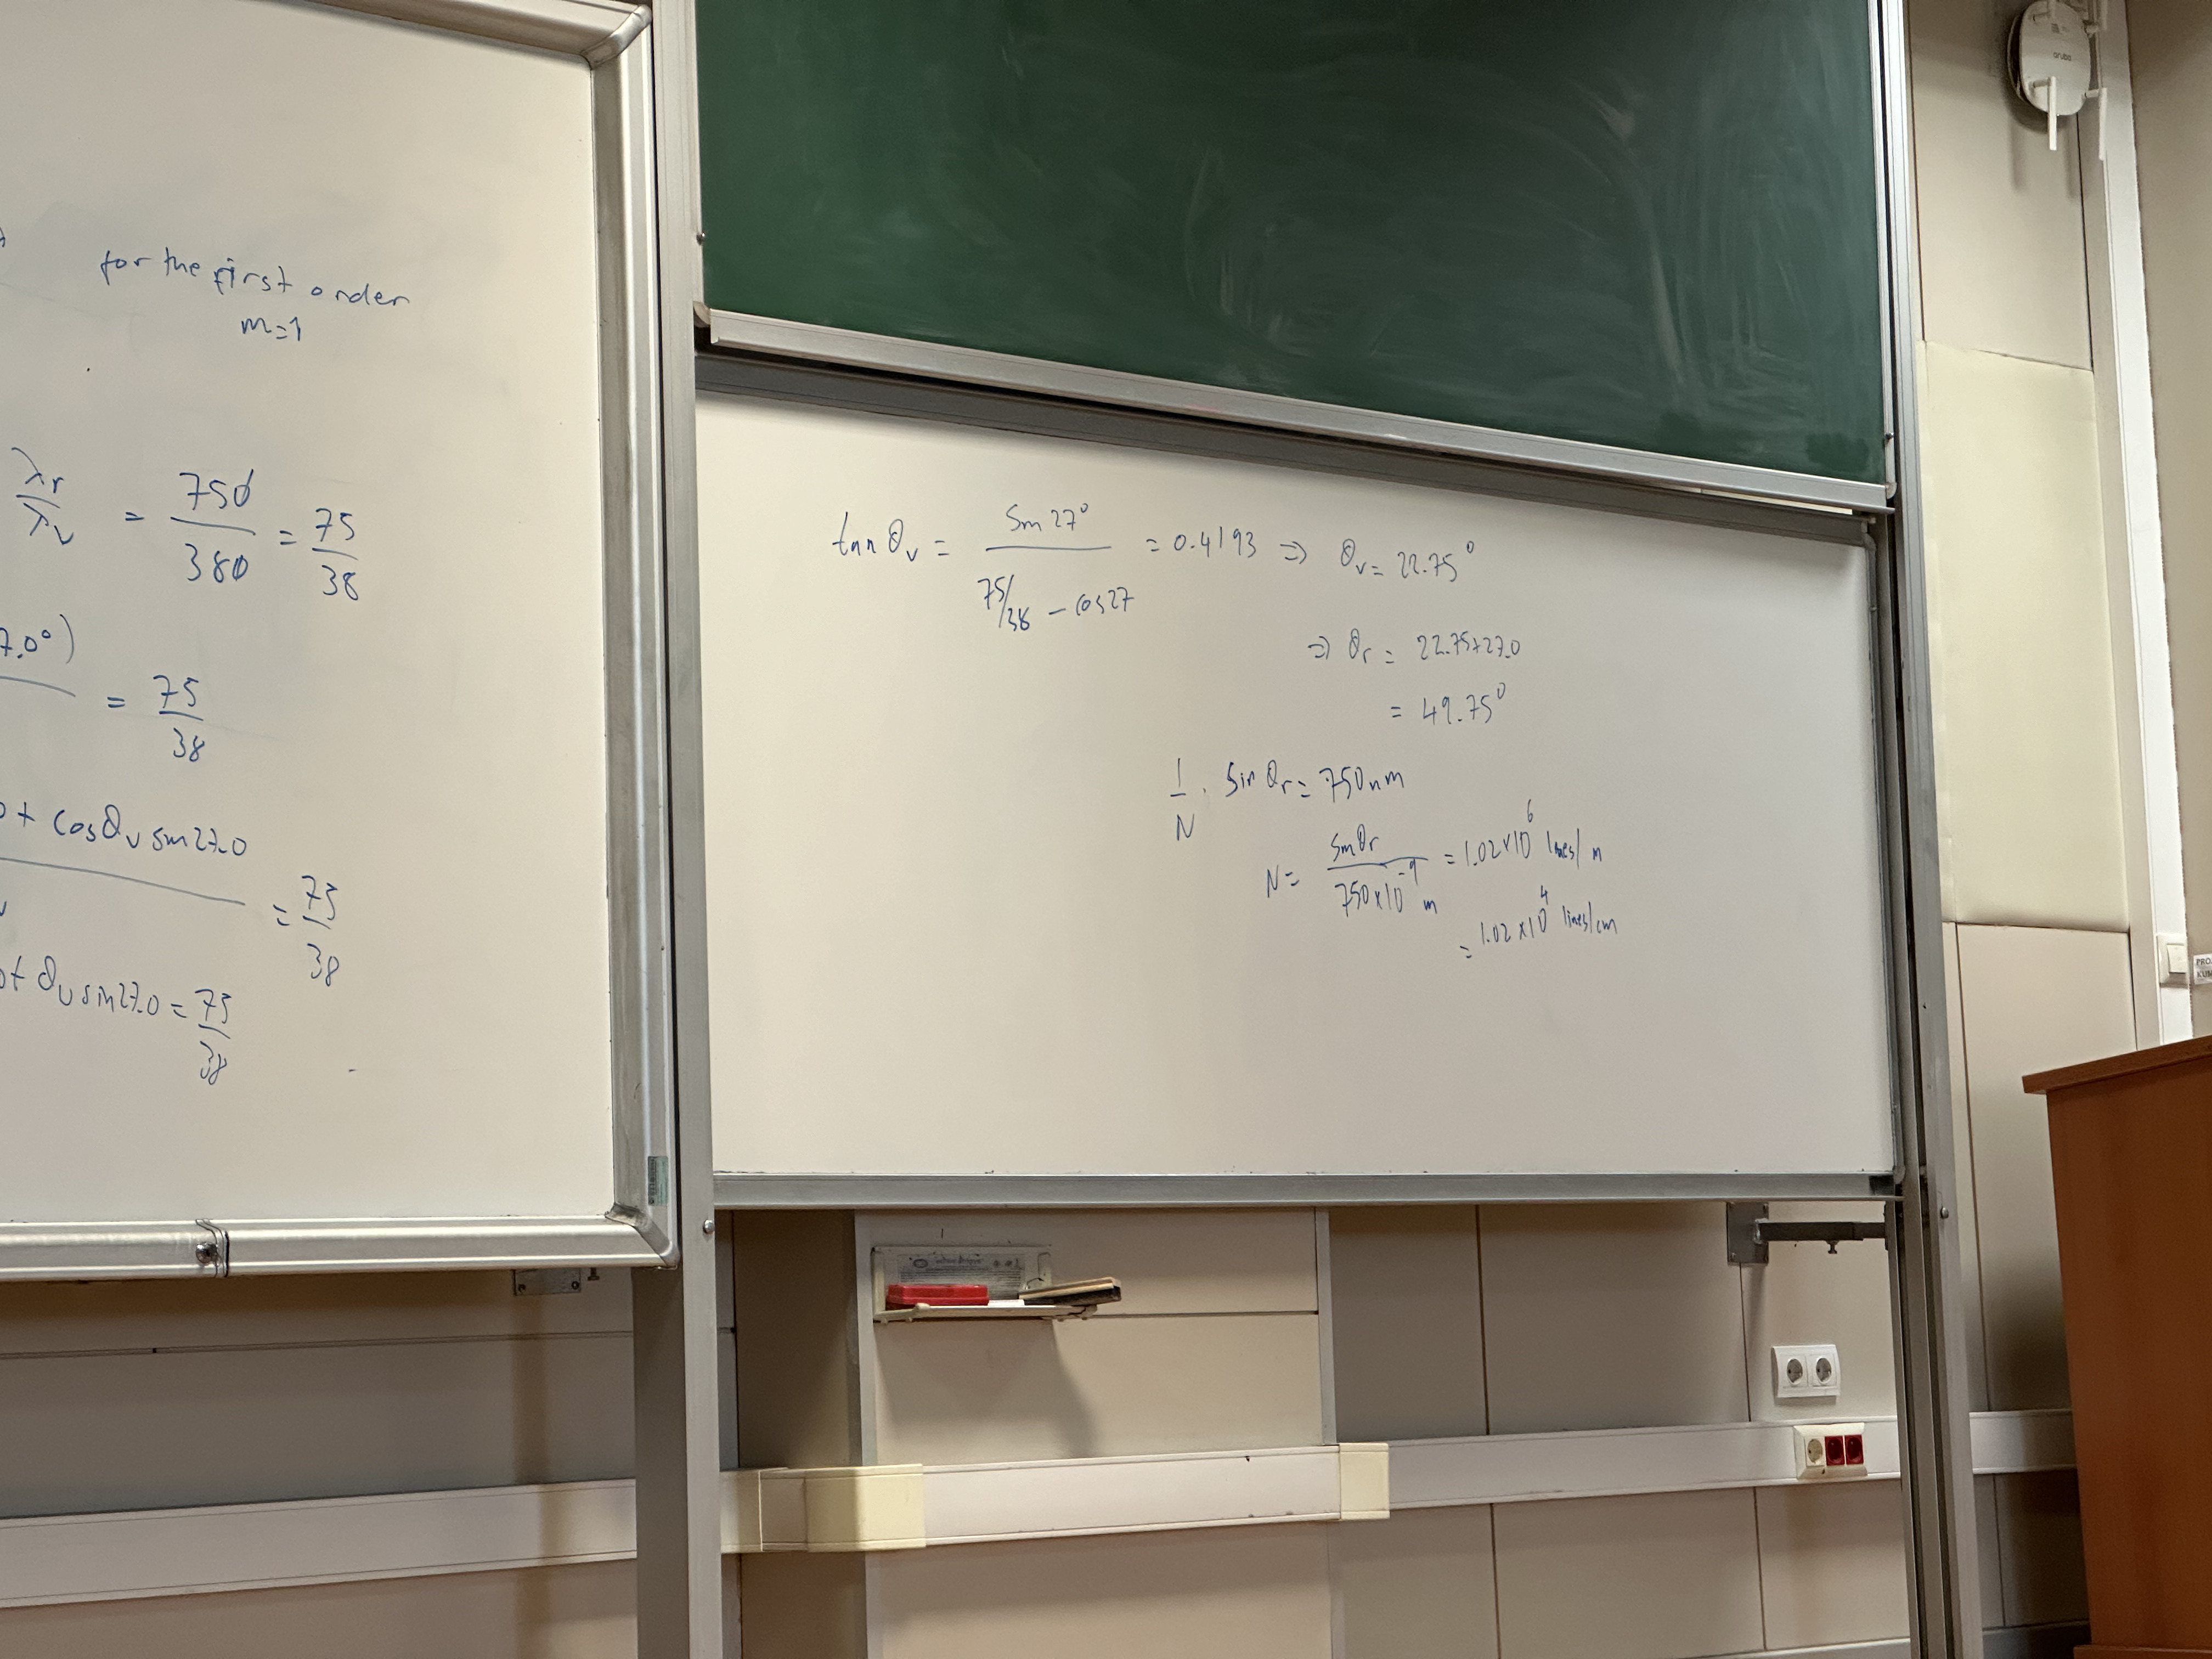 for the first order
m=1
λr/λv = 750/380 = 75/38
7.0°) = 75/38
+ cosθv sin27.0 = 75/38
ot θv sin27.0 = 75/38
tan θv = sin 27° / (75/38 − cos27) = 0.4193 ⇒ θv = 22.75°
⇒ θr = 22.75+27.0
= 49.75°
1/N . sin θr = 750nm
N = sinθr / 750×10⁻⁹ m = 1.02×10⁶ lines/m
= 1.02×10⁴ lines/cm
aruba
PRO
KUM